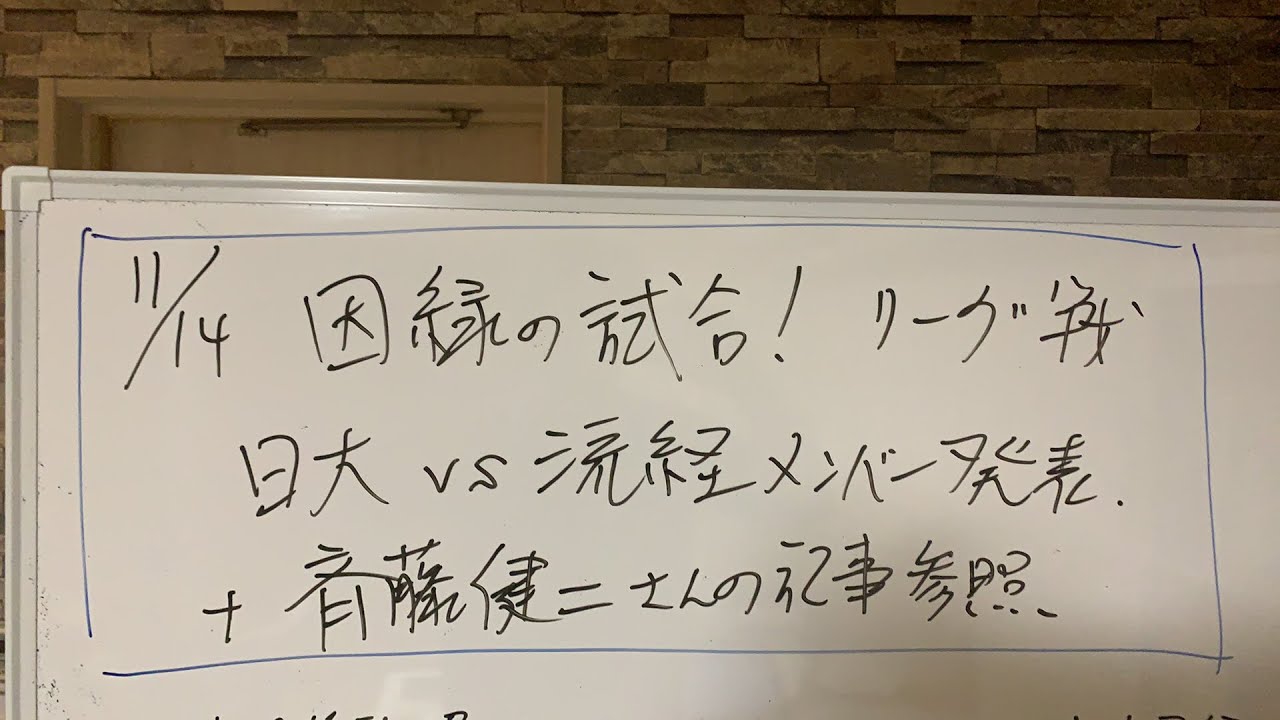 11/14 因縁の試合! リーグ戦
日大 vs 流経メンバー発表.
+ 斉藤健二さんの記事参照、